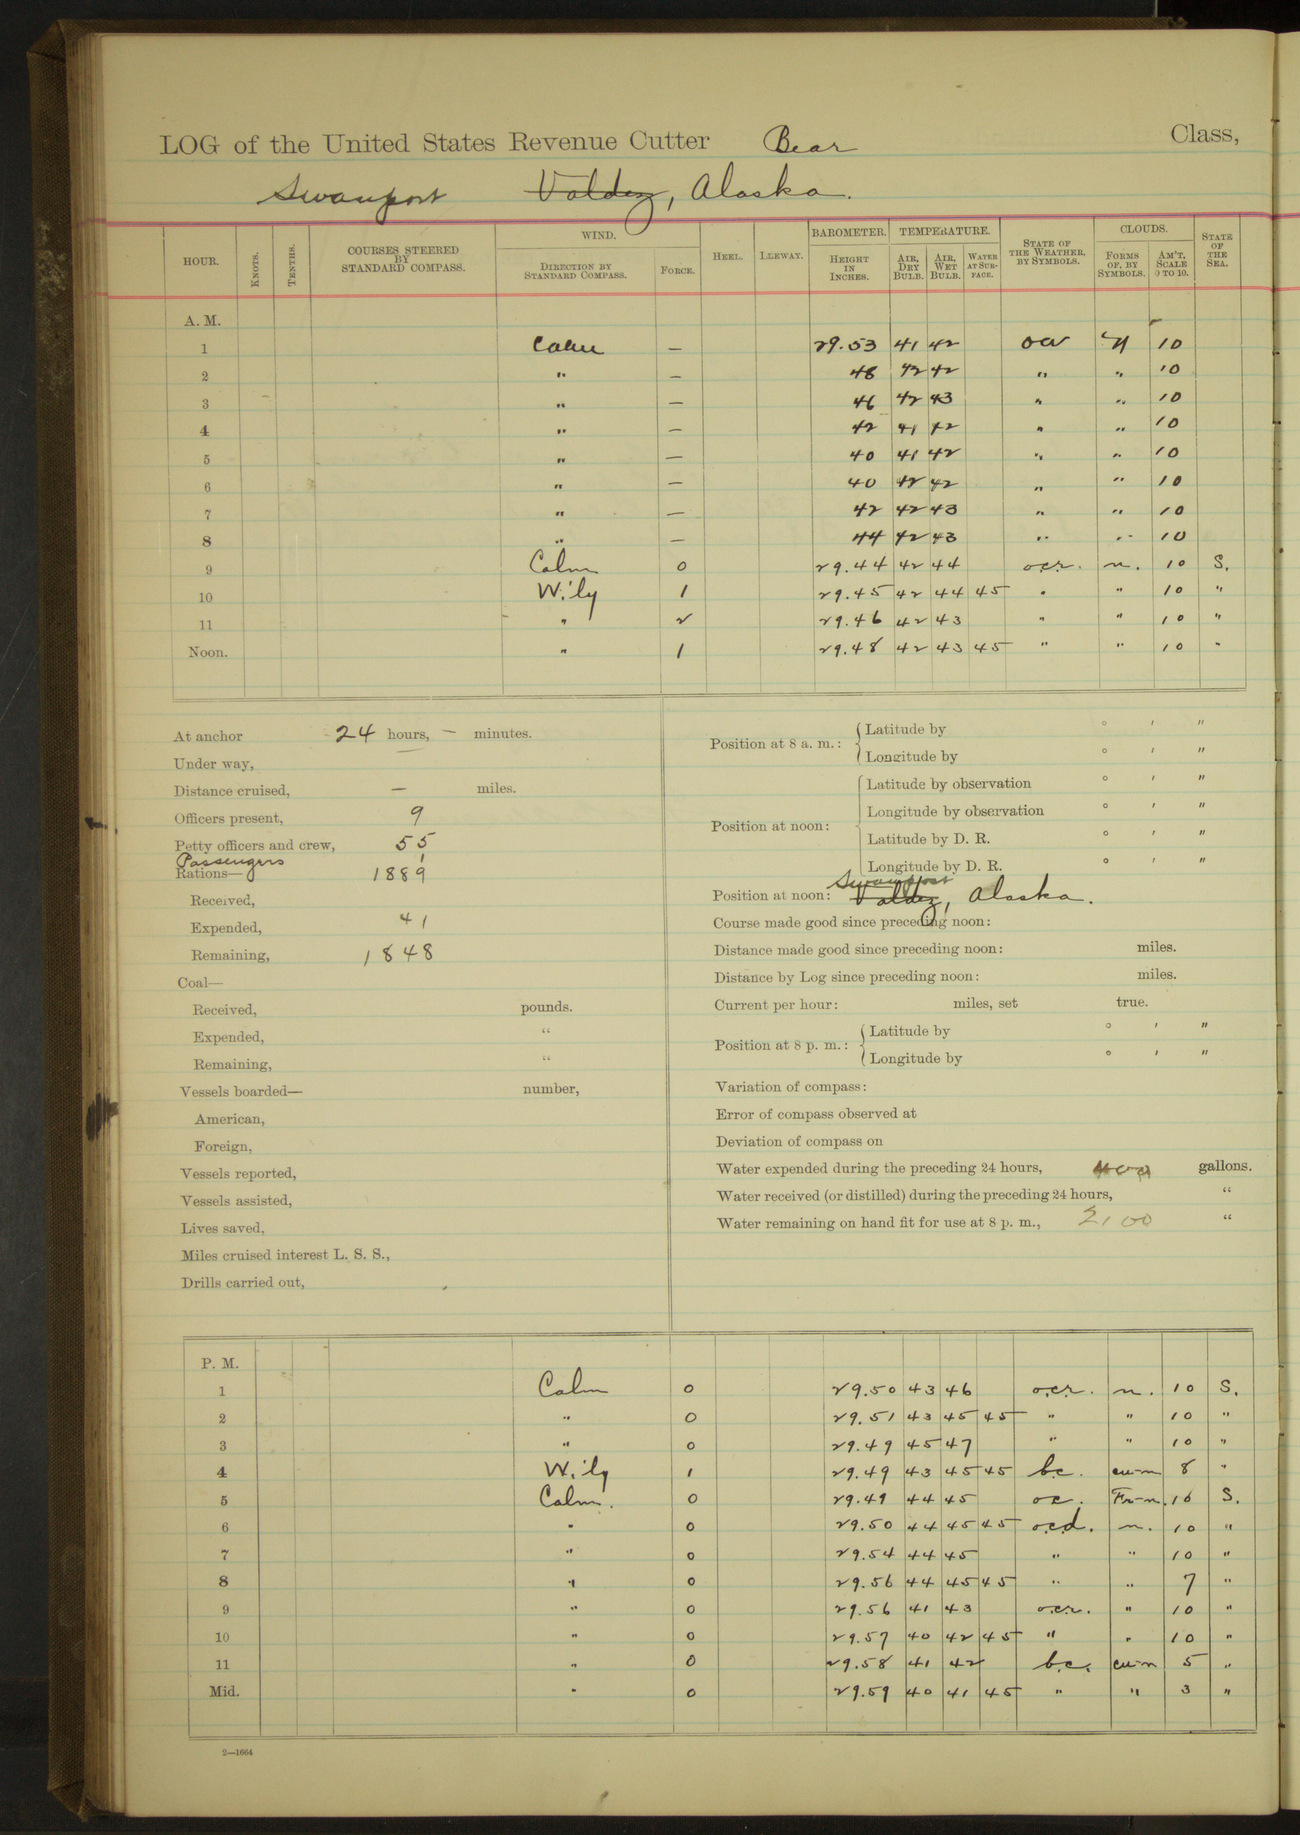 LOG of the United States Revenue Cutter Bear Class,
Swanport Valdez, Alaska.
HOUR. KNOTS. TENTHS. COURSES STEERED BY STANDARD COMPASS. WIND. DIRECTION BY STANDARD COMPASS. FORCE. HEEL. LEEWAY. BAROMETER. HEIGHT IN INCHES. TEMPERATURE. AIR, DRY BULB. AIR, WET BULB. WATER AT SURFACE. STATE OF THE WEATHER, BY SYMBOLS. CLOUDS. FORMS OF, BY SYMBOLS. AM'T, SCALE 0 TO 10. STATE OF THE SEA.
A. M.
1 Calm — 29.53 41 42 10
2 " — 48 42 42 " " 10
3 " — 46 42 43 " " 10
4 " — 42 41 42 " " 10
5 " — 40 41 42 " " 10
6 " — 40 42 42 " " 10
7 " — 42 42 43 " " 10
8 " — 44 42 43 " " 10
9 Calm 0 29.44 42 44 o.c.r. n. 10 S.
10 W.'ly 1 29.45 42 44 45 " " 10 "
11 " 2 29.46 42 43 " " 10 "
Noon. " 1 29.48 42 43 45 " " 10 "
At anchor 24 hours, — minutes.
Under way,
Distance cruised, — miles.
Officers present, 9
Petty officers and crew, 55
Passengers 1
Rations— 1889
Received,
Expended, 41
Remaining, 1848
Coal—
Received, pounds.
Expended, "
Remaining, "
Vessels boarded— number,
American,
Foreign,
Vessels reported,
Vessels assisted,
Lives saved,
Miles cruised interest L. S. S.,
Drills carried out,
Position at 8 a. m.: Latitude by ° ' "
Longitude by ° ' "
Position at noon: Latitude by observation ° ' "
Longitude by observation ° ' "
Latitude by D. R. ° ' "
Longitude by D. R. ° ' "
Swanport
Position at noon: Valdez, Alaska.
Course made good since preceding noon:
Distance made good since preceding noon: miles.
Distance by Log since preceding noon: miles.
Current per hour: miles, set true.
Position at 8 p. m.: Latitude by ° ' "
Longitude by ° ' "
Variation of compass:
Error of compass observed at
Deviation of compass on
Water expended during the preceding 24 hours, 400 gallons.
Water received (or distilled) during the preceding 24 hours, "
Water remaining on hand fit for use at 8 p. m., 2100 "
P. M.
1 Calm 0 29.50 43 46 o.c.r. n. 10 S.
2 " 0 29.51 43 45 45 " " 10 "
3 " 0 29.49 45 47 " " 10 "
4 W.'ly 1 29.49 43 45 45 b.c. cu-n 8 "
5 Calm. 0 29.49 44 45 oc. Fr-n. 10 S.
6 " 0 29.50 44 45 45 o.c.d. n. 10 "
7 " 0 29.54 44 45 " " 10 "
8 " 0 29.56 44 45 45 " " 7 "
9 " 0 29.56 41 43 o.c.r. " 10 "
10 " 0 29.57 40 42 45 " " 10 "
11 " 0 29.58 41 42 b.c. cu-n 5 "
Mid. " 0 29.59 40 41 45 " " 3 "
2—1664